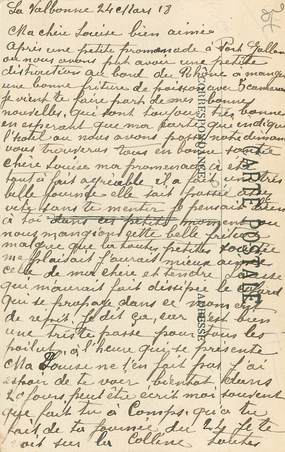 La Valbonne 24 Mars 18
Ma chère Louise bien aimée
Après une petite promenade à Port Galland
ou nous avons put avoir une petite
distraction au bord du Rhône a mangé
une bonne friture de poisson avec 3 camara
je vient te faire part de mes bonnes
nouvelles, qui sont toujour très bonnes
en esperent que ma carte qui indique
l'hotel ou nous avons passé notre dimanche
vous trouveras tous en bonne santée
chère Louise ma promenade a est
tout a fait agréable il a fait un très
belle journée elle fut passée
vete sans te mentir je pensais bien
à toi dans ces petits moments ou
nous mangions cette belle friture
malgrée que la toute petite société
me plaisait j'aurais mieux aimé
celle de ma chère et tendre Louise
qui maurait fait dissipée le cafard
qui se propage dans ce moment
de repit, je dit ça, car c'est bien
une triste passe pour tous les
poilut a l'heure qui se presente
Ma Louise ne t'en fait pas j'ai
espoir de te voir bientot dans
20 jours, peut être ecrit moi souvent
que fait tu à Comps, qu'a tu
fait de ta journée du 24 Je te
voit sur la Colline
CORRESPONDANCE
CARTE POSTALE
ADRESSE